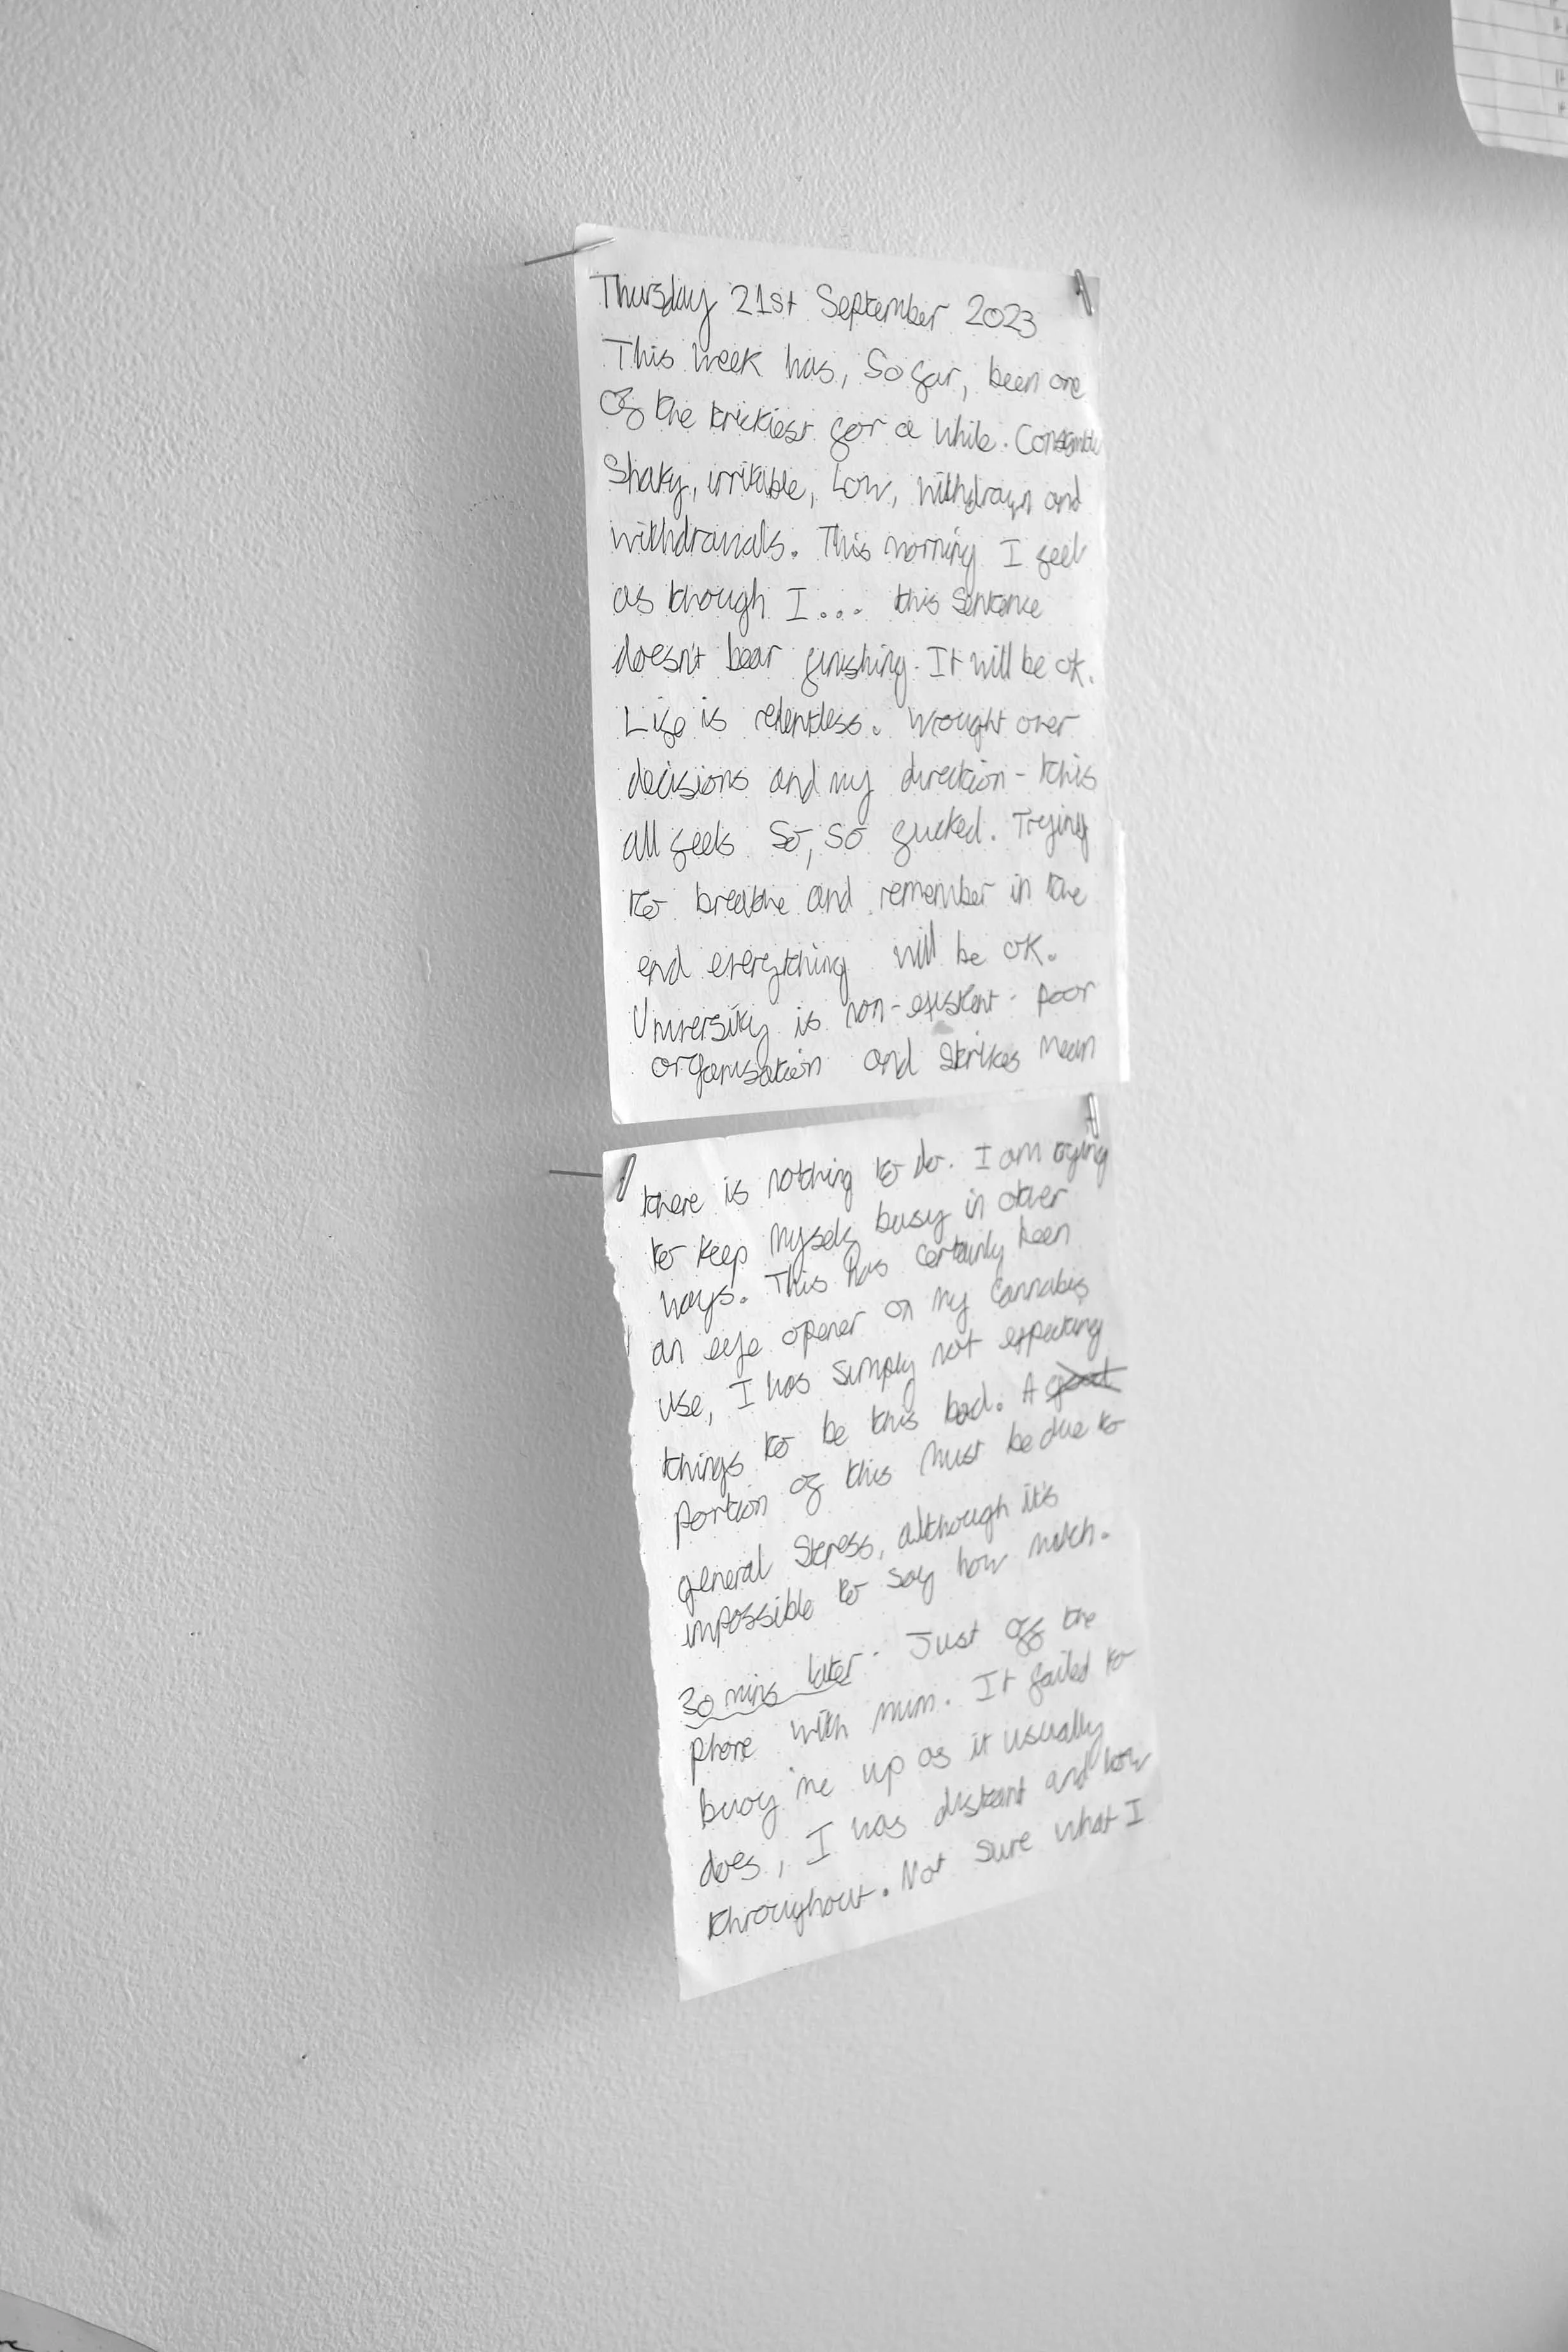 Thursday 21st September 2023
This week has, so far, been one
of the trickiest for a while.
Shaky, irritable, low, withdrawn and
withdrawals. This morning I feel
as though I... this sentence
doesn't bear finishing. It will be ok.
Life is relentless. Wrought over
decisions and my direction - this
all feels so, so fucked. Trying
to breathe and remember in the
end everything will be ok.
University is non-existent - poor
organisation and strikes mean
there is nothing to do. I am trying
to keep myself busy in other
ways. This has certainly been
an eye opener on my cannabis
use, I was simply not expecting
things to be this bad. A
portion of this must be due to
general stress, although it's
impossible to say how much.
30 mins later. Just off the
phone with mum. It failed to
buoy me up as it usually
does, I was distant and low
throughout. Not sure what I